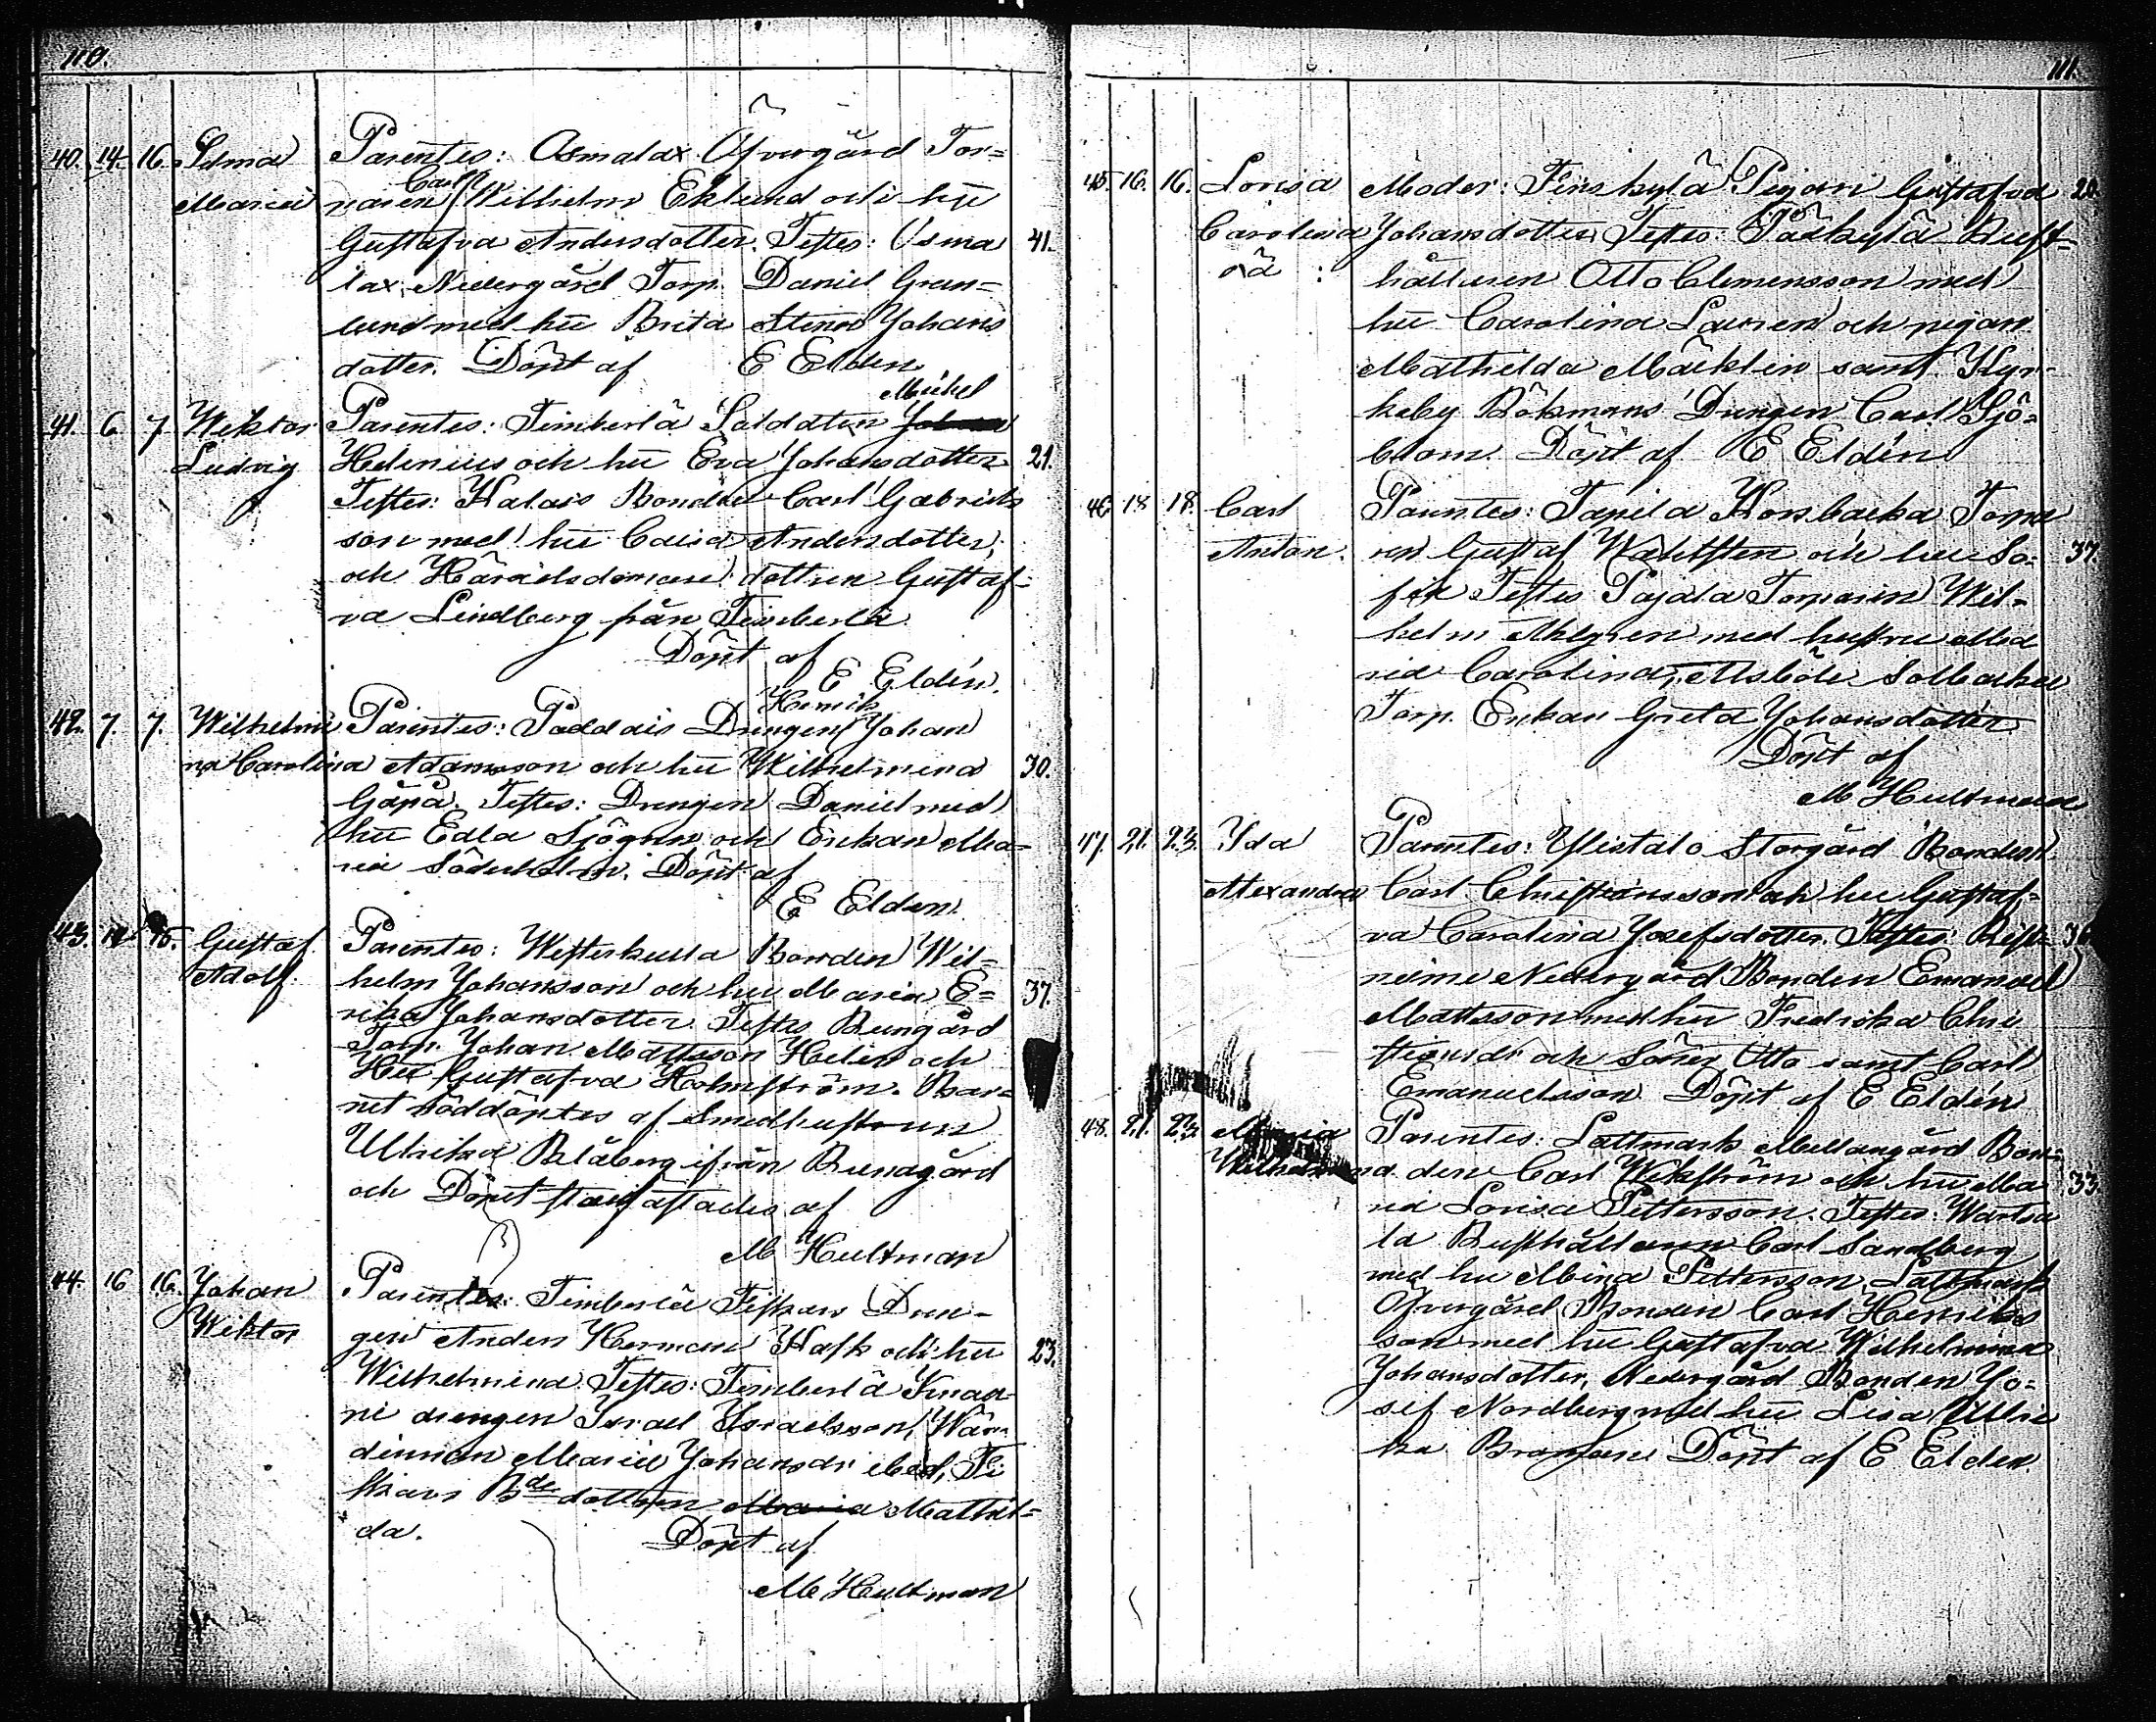 110.
40. 14. 16. Selma Parentes: Osmalax Öfvergård Tor=
Maria paren Carl Wilhelm Eklund och hu
Gustafva Andersdotter. Testes: Osma 41.
lax Nedergård Torp. Daniel Gran=
lund med hu Brita Stina Johans
dotter. Döpt af E Elden
41. 6. 7. Wiktor Parentes: Timberlä Soldaten Johan Mickel
Ludvig Helenius och hu Eva Johansdotter 21.
Testes: Halais Bonden Carl Gabriels
son med hu Caisa Andersdotter,
och Häradsdomare dottren Gustaf=
va Lindberg från Timberlä
Döpt af
E Eldén.
42. 7. 7. Wilhelmi Parentes: Paddais Drengen Johan Henrik
na Carolina Adamsson och hu Wilhelmina 30.
Gäpä. Testes: Drengen Daniel med
hu Edla Sjögren och Enkan Ma=
ria Söderholm. Döpt af
E Elden.
43. 14 15. Gustaf Parentes: Westerkulla Bonden Wil=
Adolf. helm Johansson och hu Maria E= 37.
rika Johansdotter. Testes Rungård
Torp. Johan Mattsson Helin och
Hu Gustafva Holmström. Bar=
net nöddöptes af Smedhustrun
Ulrika Blåberg ifrån Runagård
och Döpet stadfästades af
M Hultman
44. 16 16. Johan Parentes: Timberlä Tiskars Dren=
Wiktor gen Anders Herman Hask och hu 23.
Wilhelmina. Testes: Timberlä Knaa=
pi drengen Israel Israelsson, Wär=
dinnan Maria Johansdr ibid, Ti
skars Bde dottren Maria Mathil=
da. Döpt af
M Hultman
111.
45. 16. 16. Lovisa Moder: Finskylä Pigan Gustafva 20.
Carolina Johansdotter. Testes: Pärkylä Rust=
oä: hållaren Otto Clemensson med
hu Carolina Lauren och pigan
Mathilda Mäcklin samt Kyr=
keby Bökmans Drengen Carl Sjö=
blom. Döpt af E Eldén
46. 18 18. Carl Parentes: Tapila Korsbacka Torpa
Anton. ren Gustaf Wahlsten och hu So= 37.
fia Testes Pajala Torparen Wil=
helm Ahlgren med hustru Ma
ria Carolina, Alsböle Solbacka
Torp. Enkan Greta Johansdotter
Döpt af
M Hultman
47. 21. 23. Ida Parentes: Ylistalo Storgård Bonden
Alexandra Carl Christiansson och hu Gustaf=
va Carolina Josefsdotter. Testes: Rist= 36
nieme Nedergård Bonden Emanuel
Mattsson med hu Fredrika Chri
stiansdr och Söner Otto samt Carl
Emanuelsson Döpt af E Eldén
48. 21. 23. Maria Parentes: Lattmark Mellangård Bon=
Wilhelmina den Carl Wikström och hu Ma 33.
ria Lovisa Pettersson. Testes: Wartsa
la Rusthållaren Carl Sandberg
med hu Mina Pettersson. Lattmark
Öfvergård Bonden Carl Henriks
son med hu Gustafva Wilhelmina
Johansdotter, Nedergård Bonden Jo=
sef Nordberg med hu Lisa Ulri
ka Döpt af E Elden.